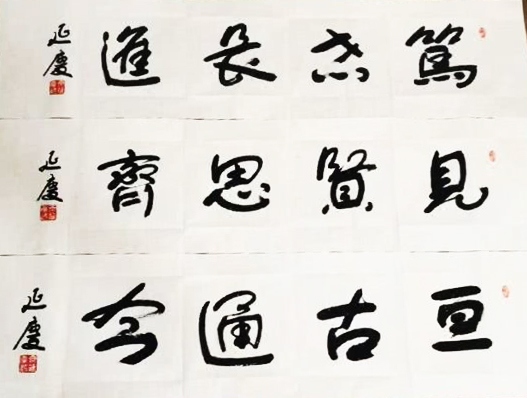 篤志長進 延慶
見賢思齊 延慶
亘古通今 延慶